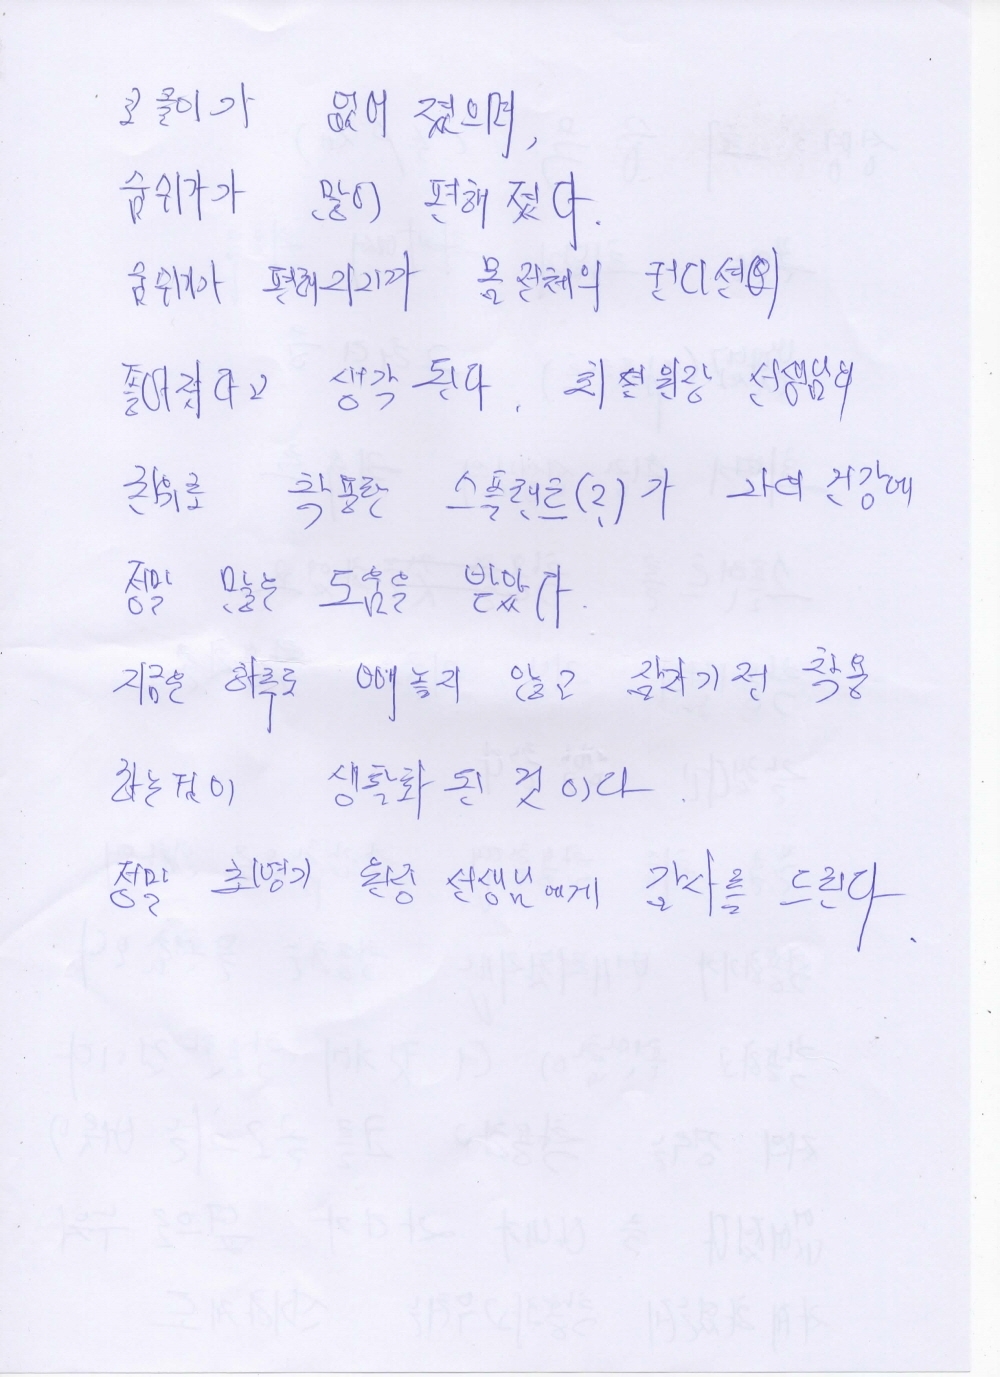 코골이가 없어 졌으며,
숨쉬기가 많이 편해 졌다.
숨쉬기가 편해지니까 몸 전체의 컨디션이
좋아졌다고 생각 된다. 최 원장 선생님의
권유로 착용한 스플린트(2.)가 나의 건강에
정말 많은 도움을 받았다.
지금은 하루도 빼놓지 않고 잠자기 전 착용
하는것이 생활화 된 것 이다.
정말 최영기 원장 선생님에게 감사를 드린다.